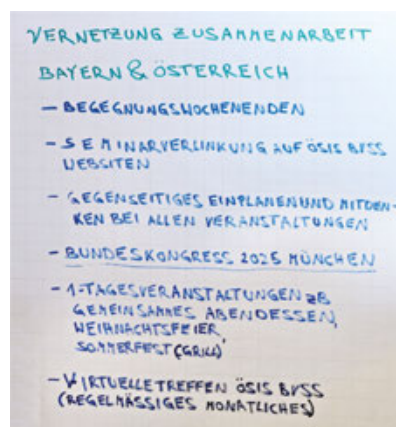 VERNETZUNG ZUSAMMENARBEIT
BAYERN & ÖSTERREICH
– BEGEGNUNGSWOCHENENDEN
– SEMINARVERLINKUNG AUF ÖSIS BVSS
WEBSITEN
– GEGENSEITIGES EINPLANEN UND MITDEN-
KEN BEI ALLEN VERANSTALTUNGEN
– BUNDESKONGRESS 2025 MÜNCHEN
– 1-TAGESVERANSTALTUNGEN ZB
GEMEINSAMES ABENDESSEN,
WEIHNACHTSFEIER,
SOMMERFEST (GRILL)
– VIRTUELLE TREFFEN ÖSIS BVSS
(REGELMÄSSIGES MONATLICHES)